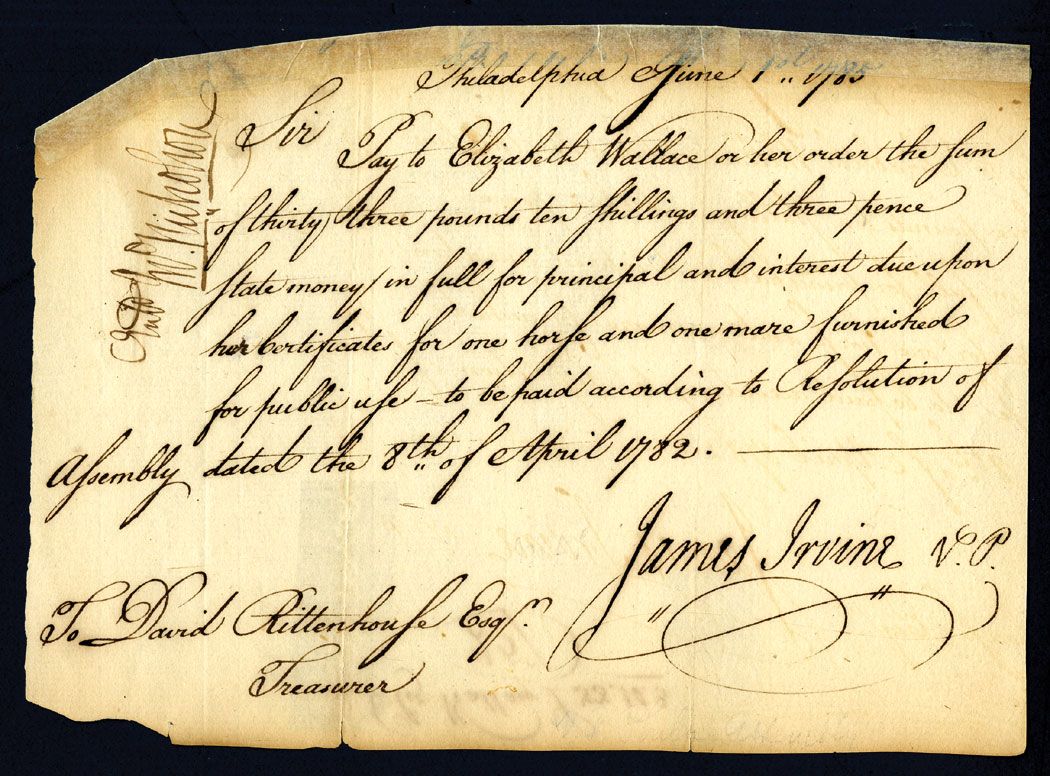 Philadelphia June 1st 1785
Sir
Pay to Elizabeth Wallace or her order the sum
of thirty three pounds ten shillings and three pence
state money in full for principal and interest due upon
her Certificates for one horse and one mare furnished
for public use – to be paid according to Resolution of
Assembly dated the 8th of April 1782.
James Irvine V.P.
To David Rittenhouse Esqr.
Treasurer
Jno. Nicholson